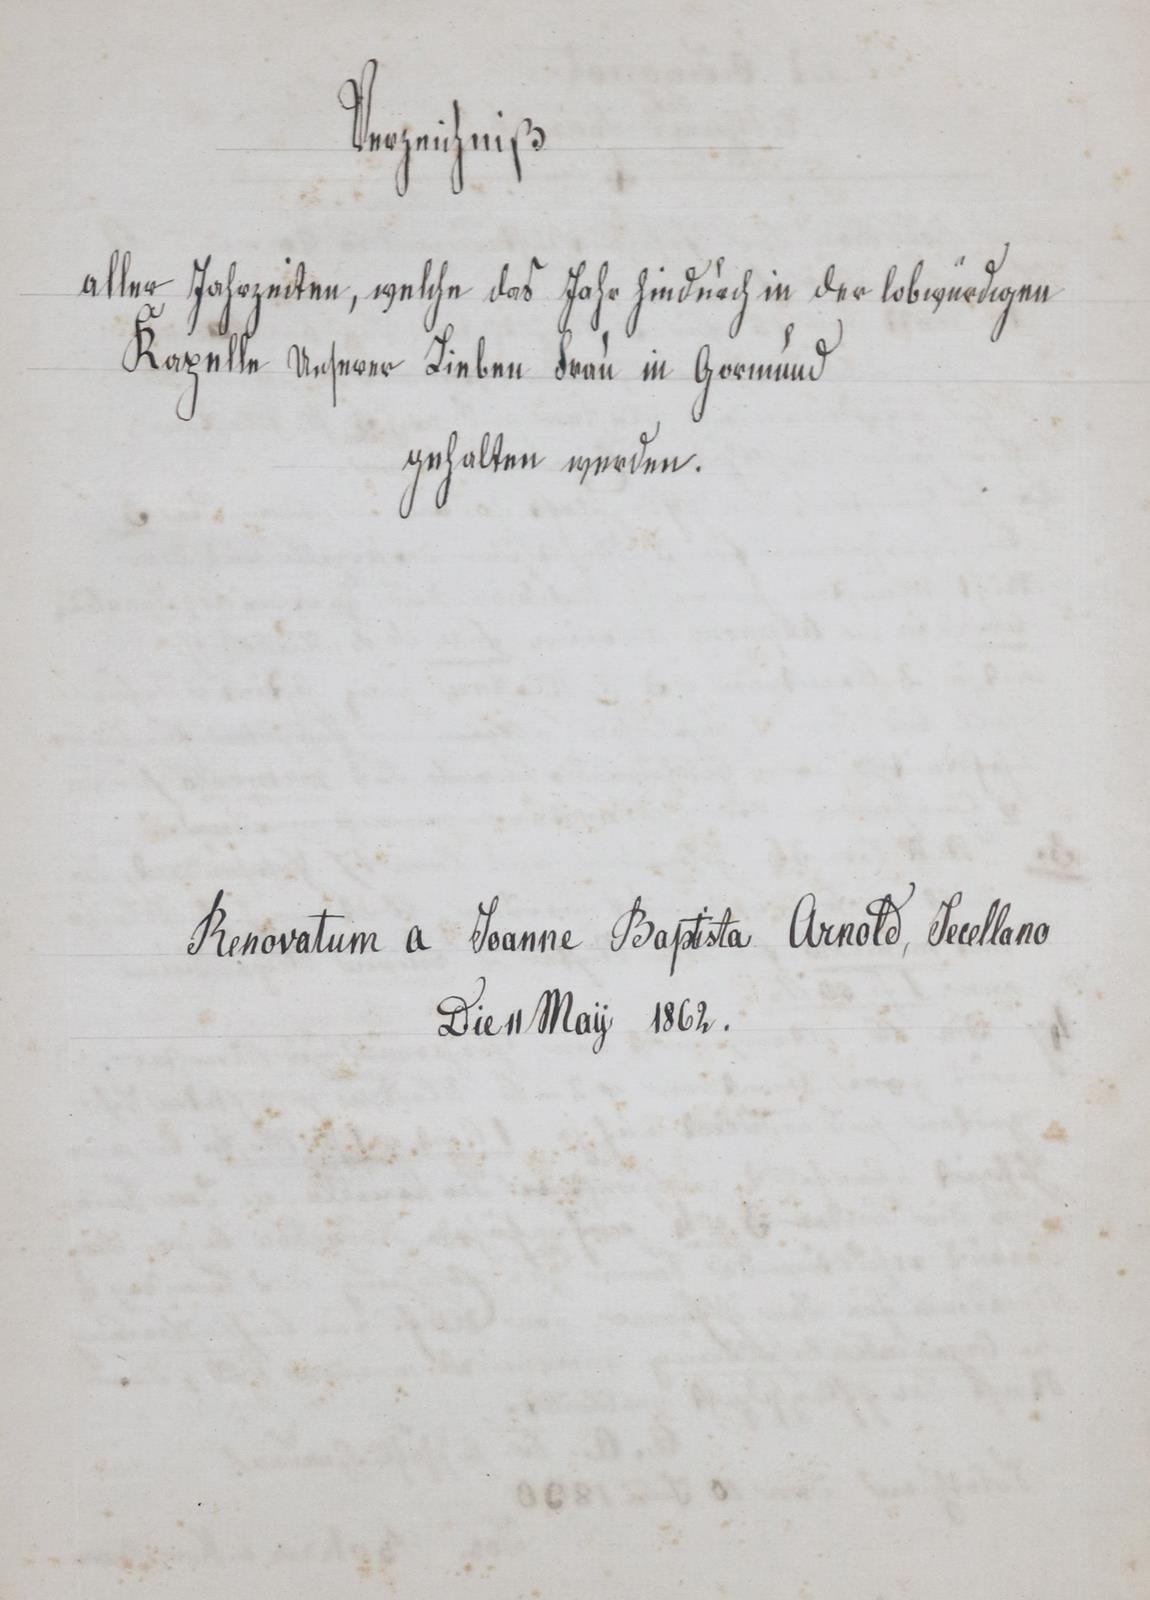 Verzeichniß
aller Jahrzeiten, welche das Jahr hindurch in der lobwürdigen
Kapelle Unserer Lieben Frau in Gormund
gehalten werden.
Renovatum a Joanne Baptista Arnold, Secellano
Die 11 Maÿ 1862.